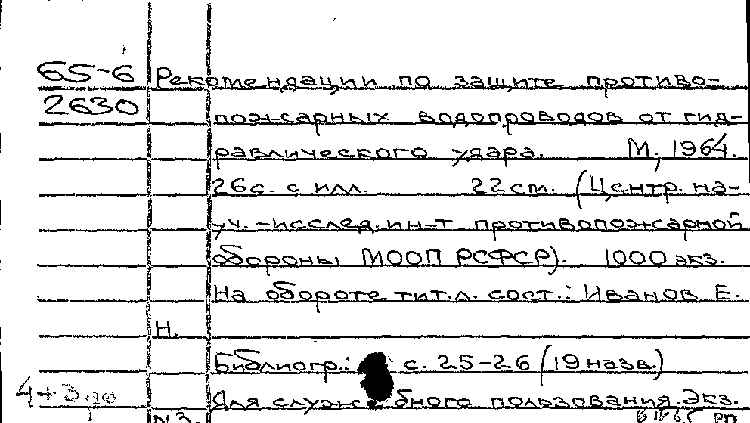 65-6 Рекомендации по защите противо-
2630 пожарных водопроводов от гид-
равлического удара. М., 1964.
26с. с илл. 22 см. (Центр. на-
уч.-исслед. ин-т противопожарной
обороны МООП РСФСР). 1000 экз.
На обороте тит. л. сост.: Иванов Е.
Н.
Библиогр.: с. 25-26 (19 назв.)
Для служебного пользования. Экз.